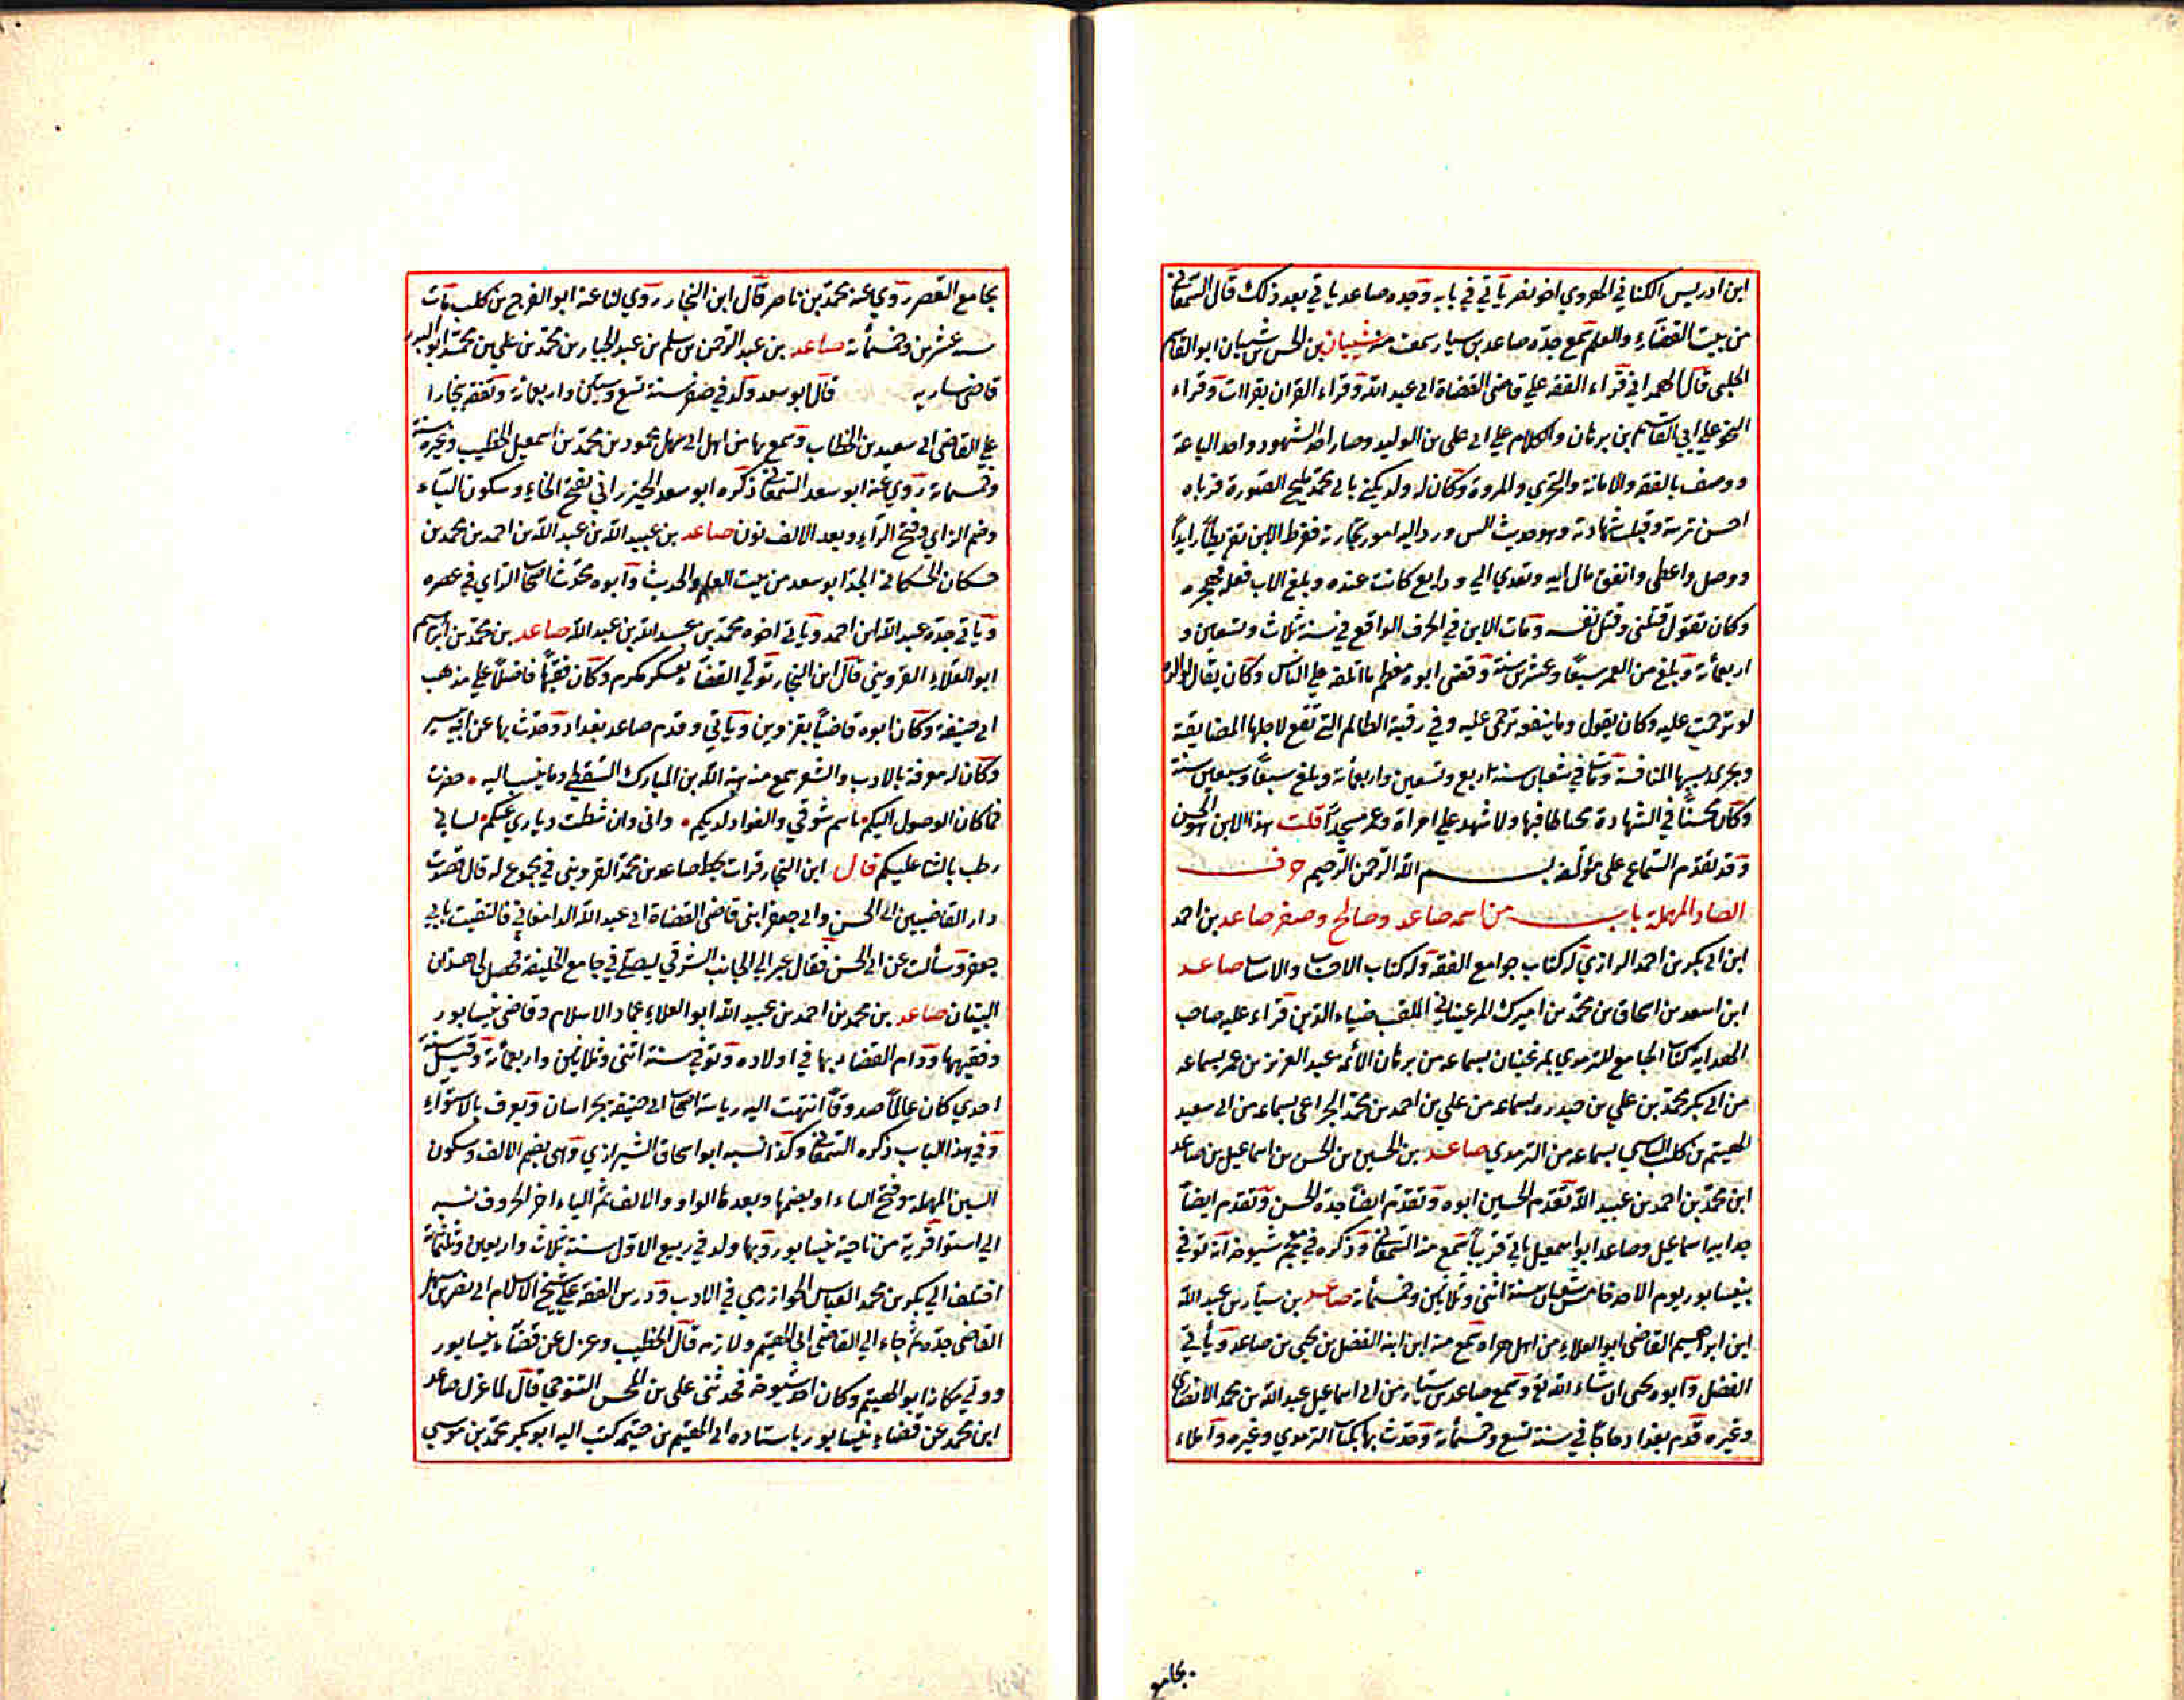 ابن ادريس الكناني الهروي اخو نصر ياتي في بابه وجده صاعد ياتي بعد ذلك قال السمعاني
من بيت القضاء والعلم سمع جده صاعد بن سيار سمعت منه شيبان بن الحسن بن شيبان ابو القاسم
الحلبى قال الهمداني قراء الفقه علي قاضى القضاة ابى عبد الله وقراء القران بقراات وقراء
النحو علي ابي القاسم بن برهان والكلام علي ابى على بن الوليد وصار احد الشهود واحد الباعة
ووصف بالفقه والامانة والتحري والمروة وكان له ولد يكنى بابى محمد مليح الصورة فرباه
احسن تربية وقبلت شهادته وهو حديث السن ورد اليه امور تجارته ففرط الابن تفريطا زايدا
ووصل واعطى وانفق مال ابيه وتعدي الي ودايع كانت عنده وبلغ الاب فعله فهجره
وكان يقول قتلنى وقتل نفسه ومات الابن في الحرف الواقع في سنة ثلاث وتسعين و
اربعمأة وبلغ من العمر سبعا وعشرين سنة وقضى ابوه معظم ما اتلفه علي الناس وكان يقال لوالده
لو ترحمت عليه وكان يقول وما ينفعه ترحمى عليه وفي رقبته المظالم التي تقع لاجلها المضايقة
ويجري بسببها المنافسة ومات في شعبان سنة اربع وتسعين واربعمأة وبلغ سبعا وسبعين سنة
وكان محسنا في الشهادة محتاطا فيها ولا شهد علي امراة وعمر مسجدا قلت هذا الابن هو الحسن
وقد تقدم السماع على مؤلفه بسم الله الرحمن الرحيم حرف
الصاد المهملة باب من اسمه صاعد وصالح وصغر صاعد بن احمد
ابن ابى بكر بن احمد الرازي له كتاب جوامع الفقه وله كتاب الاحساب والانساب صاعد
ابن اسعد بن اسحاق بن محمد بن اميرك المرغيناني الملقب ضياء الدين قراء عليه صاحب
الهداية كتاب الجامع للترمدي بمرغينان بسماعه من برهان الائمه عبد العزيز بن عمر بسماعه
من ابى بكر محمد بن علي بن حيدر بسماعه من علي بن احمد بن محمد الخزاعى بسماعه من ابى سعيد
الهيثم بن كليب الشاسي بسماعه من الترمدي صاعد بن الحسين بن الحسن بن اسماعيل بن صاعد
ابن محمد بن احمد بن عبيد الله تقدم الحسين ابوه وتقدم ايضا جده الحسن وتقدم ايضا
جد ابيه اسماعيل وصاعد ابو اسمعيل ياتي قريبا سمع منه السمعاني وذكره في معجم شيوخه انه توفي
بنيسابور يوم الاحد خامس شعبان سنة اثني وثلاثين وخمسمأة صاعد بن سيار بن عبد الله
ابن ابراهيم القاضى ابو العلاء من اهل هراه سمع منه ابن ابنه الفضل بن يحيى بن صاعد ويأتي
الفضل وابوه يحيى ان شاء الله تع وسمع صاعد بن سيار من ابى اسماعيل عبد الله بن محمد الانصاري
وغيره قدم بغداد حاجا في سنة تسع وخمسمأة وحدث بها بكتاب الترمدي وغيره واملاء
بجامع
بجامع القصر روي عنه محمد بن ناصر قال ابن النجار روي لنا عنه ابو الفرج بن كليب مات
سنة عشرين وخمسمأة صاعد بن عبد الرحمن بن مسلم بن عبد الجبار بن محمد بن علي بن محمد ابو البدر
قاضى ساريه قال ابو سعد ولد في صفر سنة تسع وستين واربعمأة وتفقه ببخارا
علي القاضى ابى سعيد بن الخطاب وسمع بها من اهل ابى سهل محمود بن محمد بن اسمعيل الخطيب وغيره سنة
وخمسمأة روي عنه ابو سعد السمعاني ذكره ابو سعد الخيزراني بفتح الخاء وسكون الياء
وضم الزاي وفتح الراء وبعد الالف نون صاعد بن عبيد الله بن عبد الله بن احمد بن محمد بن
حسكان الحسكاني الجد ابو سعد من بيت العلم والحديث وابوه محدث اصحاب الراي في عصره
وياتي جده عبد الله ابن احمد وياتي اخوه محمد بن عبيد الله بن عبد الله صاعد بن محمد بن ابراهيم
ابو العلاء القزوينى قال ابن النجار تولي القضاء بعسكر مكرم وكان فقيها فاضلا علي مذهب
ابى حنيفة وكان ابوه قاضيا بقزوين وياتي وقدم صاعد بغداد وحدث بها عن ابيه بيسير
وكان له معرفة بالادب والشعر سمع منه هبة الله بن المبارك السقطي ومما ينسب اليه حضرت
فما كان الوصول اليكم باسم شوقي والفواد لديكم وانى وان شطت دياري عنكم لساني
رطب بالثناء عليكم قال ابن النجار قرات بخط صاعد بن محمد القزوينى في مجموع له قال قصدت
دار القاضيين ابى الحسن وابى جعفر ابنى قاضى القضاة ابى عبد الله الدامغاني فالتقيت بابي
جعفر وسألت عن ابى الحسن فقال عبر الي الجانب الشرقي ليصلي في جامع الخليفة فحصل لى هذان
البيتان صاعد بن محمد بن احمد بن عبيد الله ابو العلاء عماد الاسلام وقاضى نيسابور
وفقيهها ودام القضاء بها في اولاده وتوفي سنة اثنى وثلاثين واربعمأة وقيل سنة
احدي كان عالما صدوقا انتهت اليه رياسة اصحاب ابى حنيفة بخراسان ويعرف بالاستواء
وفي هذا الباب ذكره السمعاني وكذا نسبه ابو اسحاق الشيرازي وهى بضم الالف وسكون
السين المهملة وفتح التاء او بضمها وبعدها الواو والالف ثم الياء اخر الحروف نسبه
الي استوا قرية من ناحية نيسابور وبها ولد في ربيع الاول سنة ثلاث واربعين وثلثمأة
اختلف الي بكر بن محمد العباس الخوارزمي في الادب ودرس الفقه علي شيخ الاسلام ابى نصر بن سهل
القاضى جده ثم جاء الي القاضى ابى الهيثم ولازمه قال الخطيب وعزل عن قضاء نيسابور
وولي مكانه ابو الهيثم وكان احد شيوخه فحدثنى على بن المحسن التنوخي قال لما عزل صاعد
ابن محمد عن قضاء نيسابور باستاده ابى الهيثم بن خيثمه كتب اليه ابو بكر محمد بن موسي